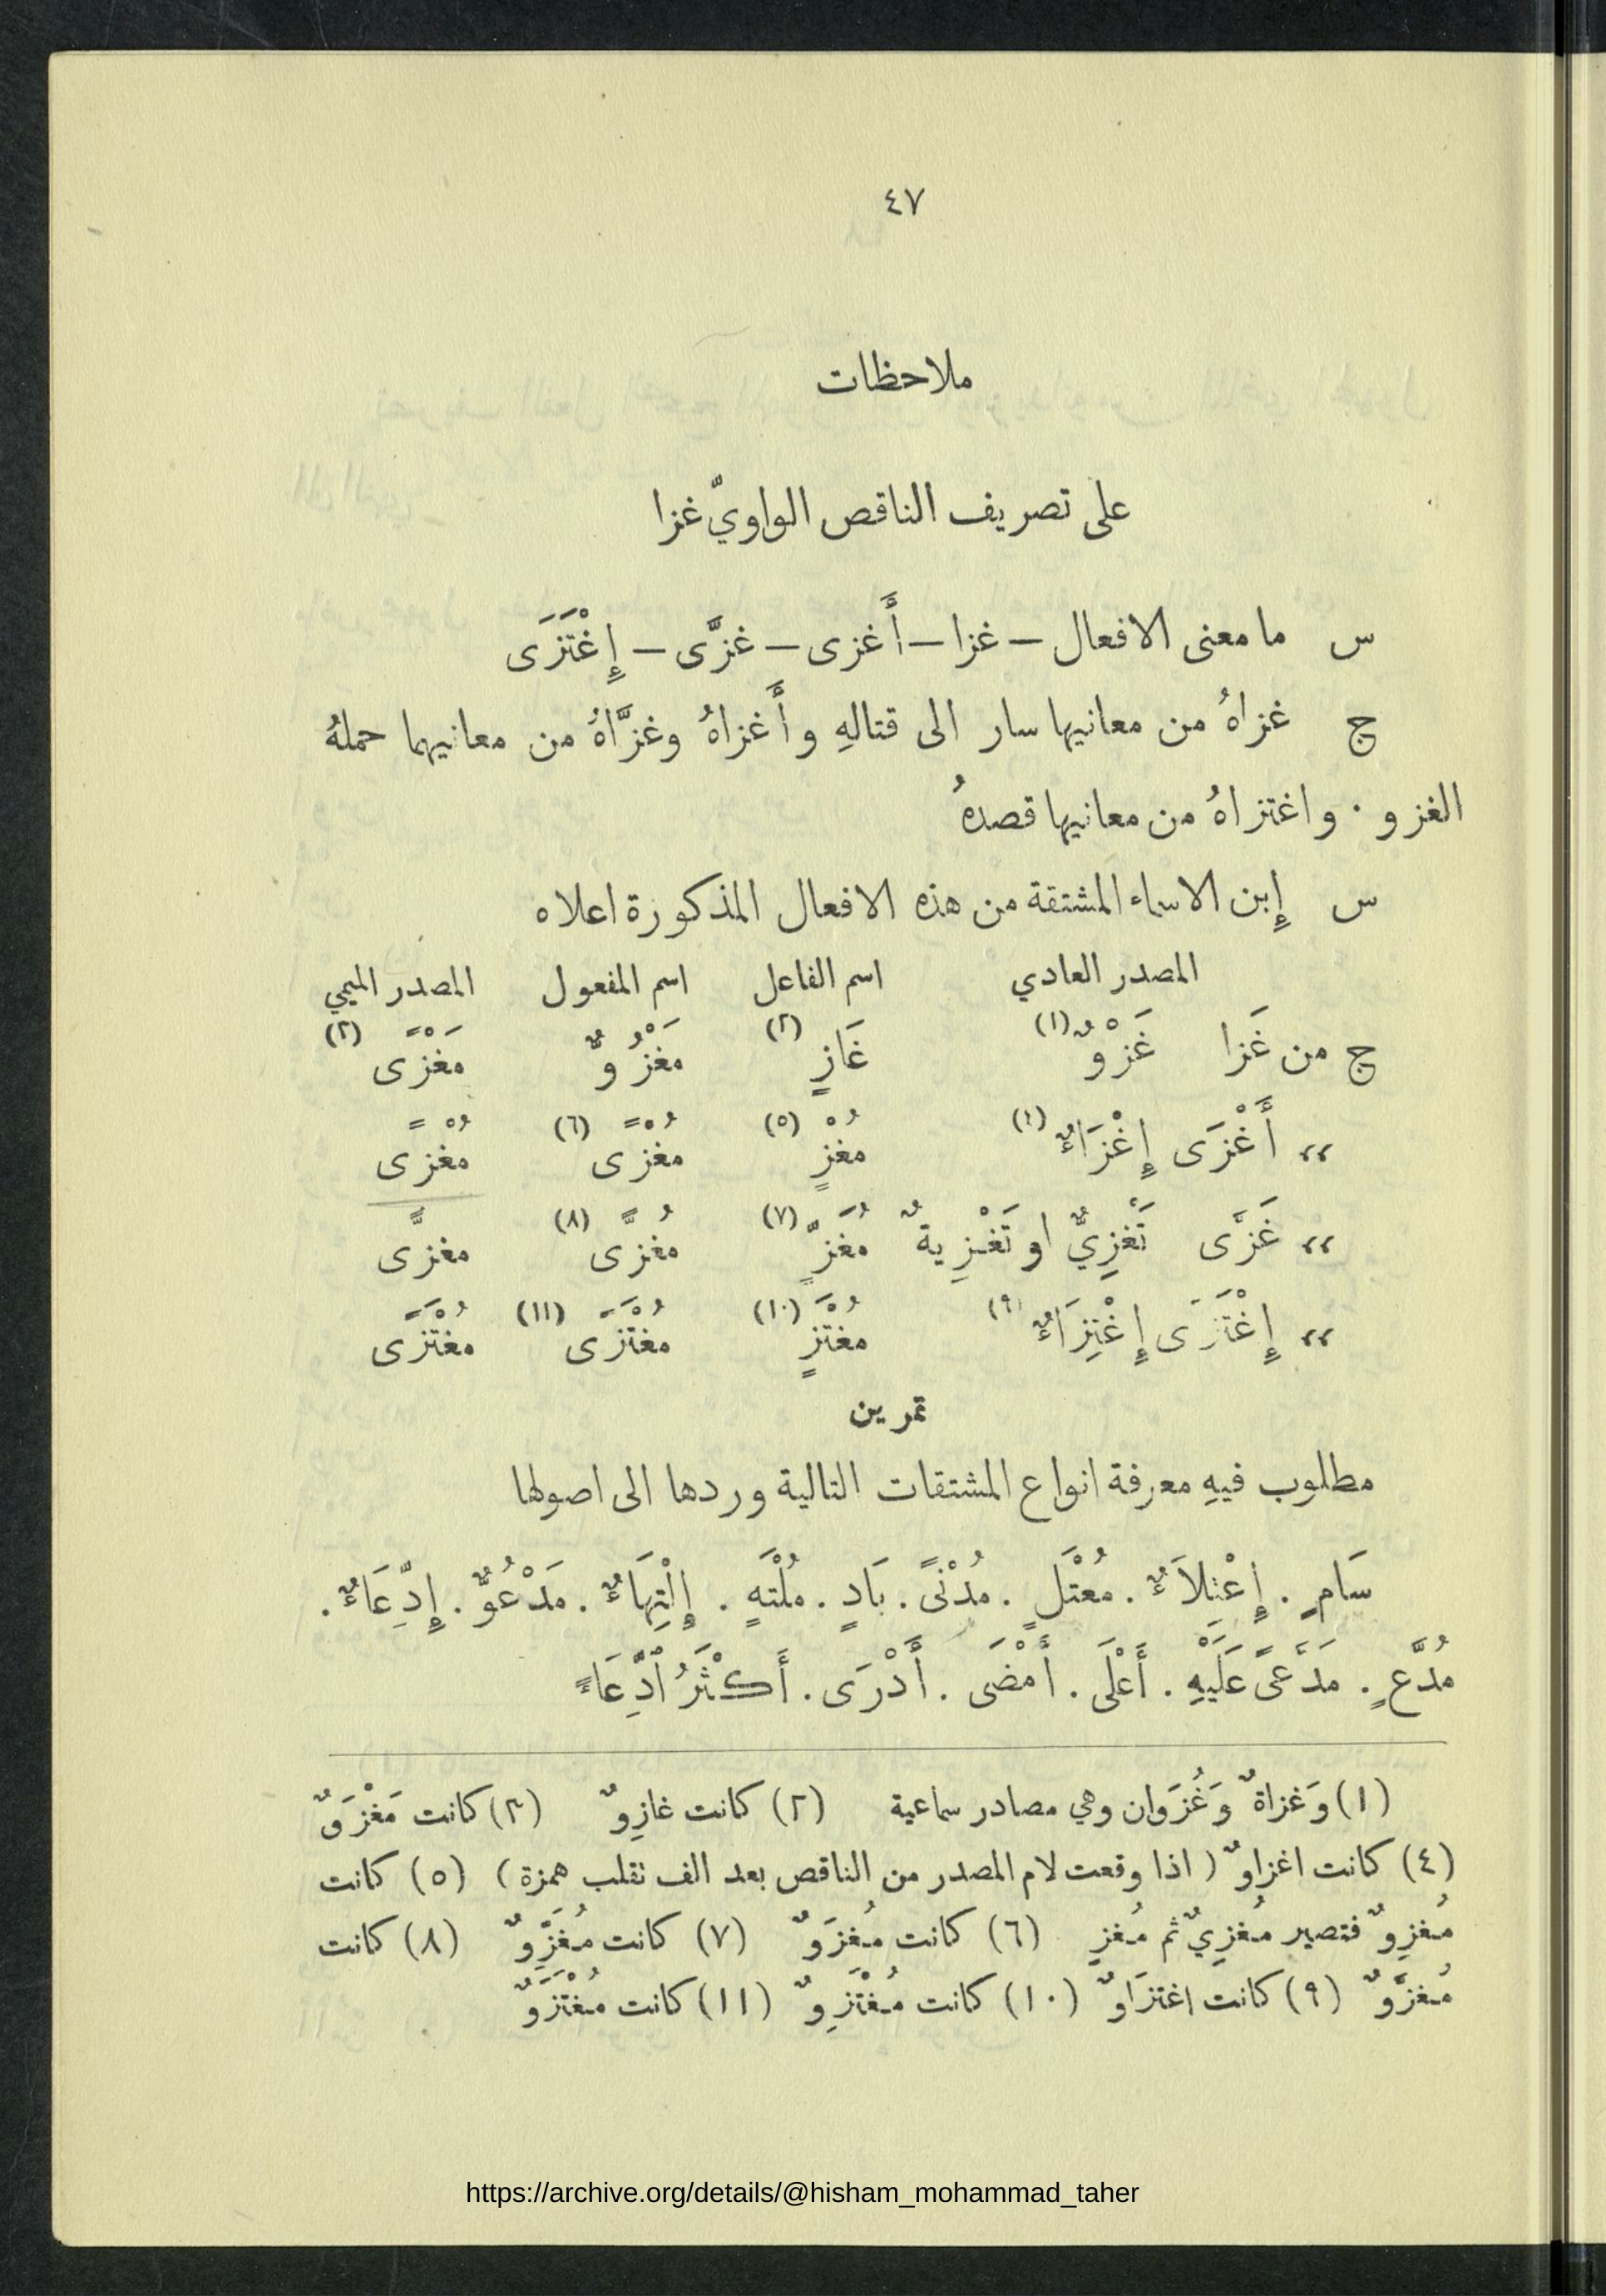 ٤٧
ملاحظات
على تصريف الناقص الواويّ غزا
س ما معنى الافعال – غزا – أَغزى – غزَّى – إِغْتَزَى
ج غزاهُ من معانيها سار الى قتالهِ و أَغزاهُ وغزَّاهُ من معانيهما حملهُ
الغزو . واغتزاهُ من معانيها قصدهُ
س إِبن الاسماء المشتقة من هذه الافعال المذكورة اعلاه
المصدر العادي اسم الفاعل اسم المفعول المصدر الميمي
ج من غَزا غَزْوٌ (١) غَازٍ (٢) مَغْزُوٌّ مَغْزًى (٣)
،، أَغْزَى إِغْزَاءٌ (٤) مُغْزٍ (٥) مُغْزًى (٦) مُغْزًى
،، غَزَّى تَغْزِيٌّ او تَغْزِيةٌ مُغَزٍّ (٧) مُغزًّى (٨) مغزًّى
،، إِغْتَزَى إِغْتِزَاءٌ (٩) مُغْتَزٍ (١٠) مُغْتَزًى (١١) مُغْتَزًى
تمرين
مطلوب فيهِ معرفة انواع المشتقات التالية وردها الى اصولها
سَامٍ . إِعْتِلَاءٌ . مُعْتَلٍ . مُدْنًى . بَادٍ . مُلْتَهٍ . إِلْتِهَاءٌ . مَدْعُوٌّ . إِدِّعَاءٌ .
مُدَّعٍ . مَدَّعًى عَلَيْهِ . أَعْلَى . أَمْضَى . أَدْرَى . أَكْثَرُ ٱدِّعَاءً
(١) وَغزاةٌ وَغُزَوان وهي مصادر سماعية (٢) كانت غازِوٌ (٣) كانت مَغْزَوٌ
(٤) كانت اغزاوٌ ( اذا وقعت لام المصدر من الناقص بعد الف تقلب همزة ) (٥) كانت
مُغزِوٌ فتصير مُغزِيٌ ثم مُغزٍ (٦) كانت مُغزَوٌ (٧) كانت مُغَزِّوٌ (٨) كانت
مُغزَّوٌ (٩) كانت اغتزَاوٌ (١٠) كانت مُغْتَزِوٌ (١١) كانت مُغْتَزَوٌ
https://archive.org/details/@hisham_mohammad_taher